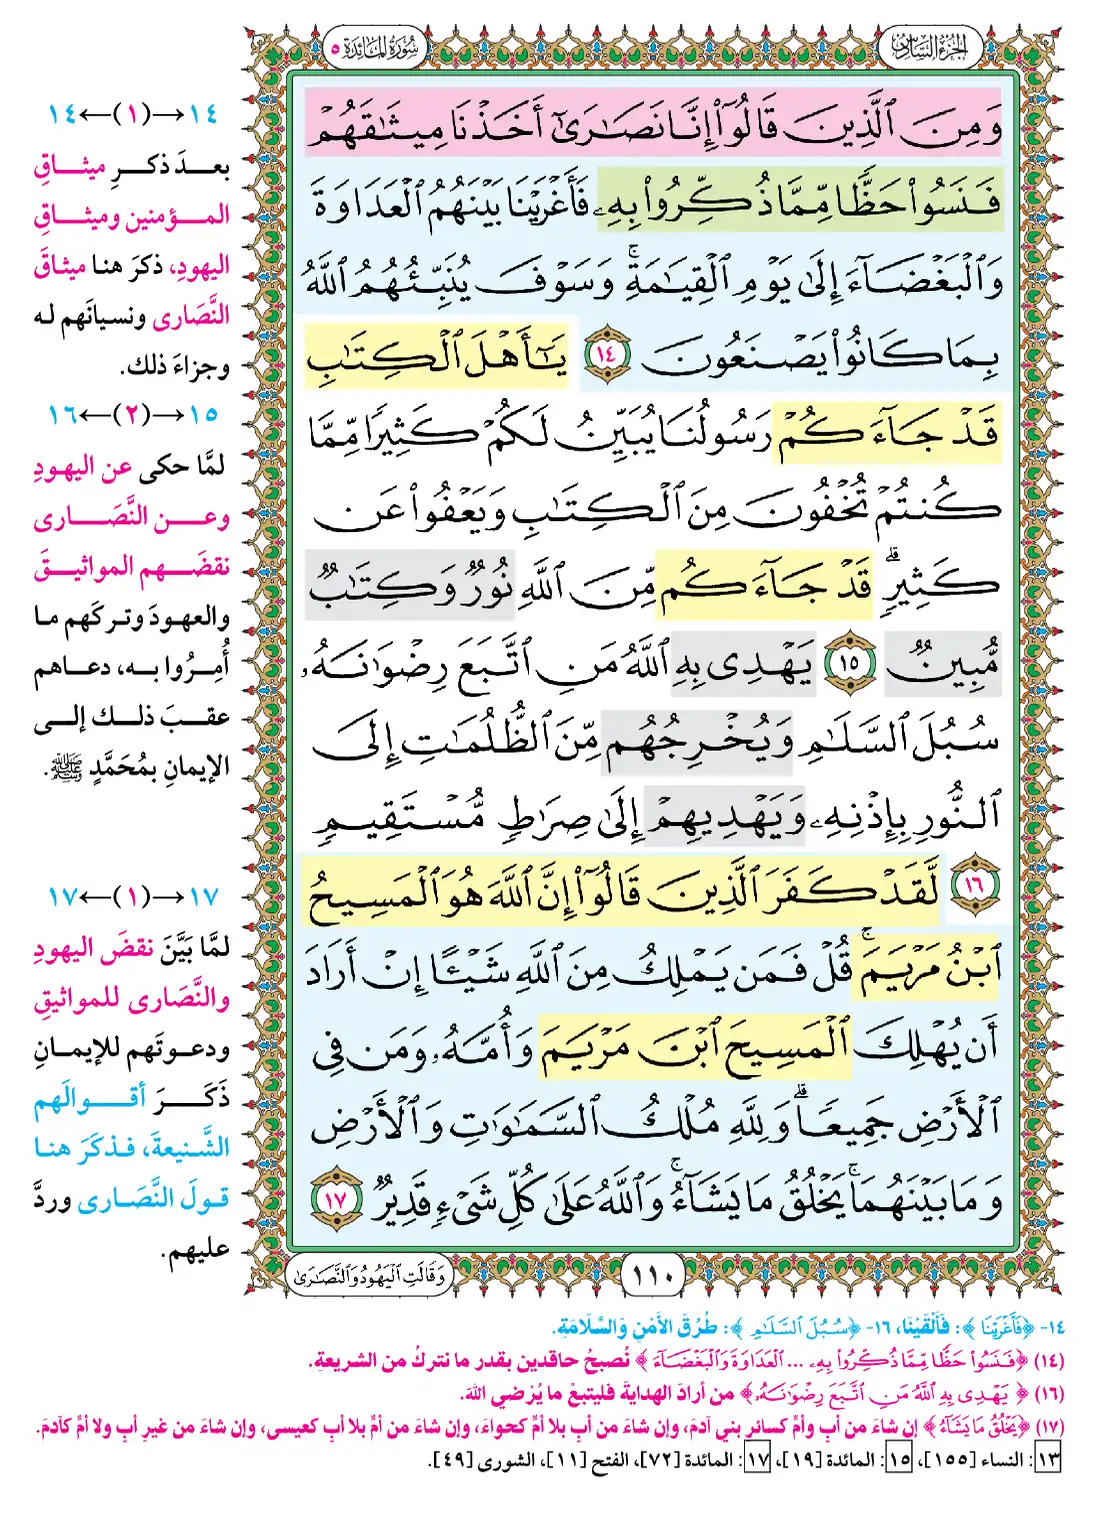 الجزء السادس
سورة المائدة ٥
وَمِنَ ٱلَّذِينَ قَالُوٓا۟ إِنَّا نَصَـٰرَىٰٓ أَخَذْنَا مِيثَـٰقَهُمْ
فَنَسُوا۟ حَظًّا مِّمَّا ذُكِّرُوا۟ بِهِۦ فَأَغْرَيْنَا بَيْنَهُمُ ٱلْعَدَاوَةَ
وَٱلْبَغْضَآءَ إِلَىٰ يَوْمِ ٱلْقِيَـٰمَةِ ۚ وَسَوْفَ يُنَبِّئُهُمُ ٱللَّهُ
بِمَا كَانُوا۟ يَصْنَعُونَ ١٤ يَـٰٓأَهْلَ ٱلْكِتَـٰبِ
قَدْ جَآءَكُمْ رَسُولُنَا يُبَيِّنُ لَكُمْ كَثِيرًا مِّمَّا
كُنتُمْ تُخْفُونَ مِنَ ٱلْكِتَـٰبِ وَيَعْفُوا۟ عَن
كَثِيرٍ ۚ قَدْ جَآءَكُم مِّنَ ٱللَّهِ نُورٌ وَكِتَـٰبٌ
مُّبِينٌ ١٥ يَهْدِى بِهِ ٱللَّهُ مَنِ ٱتَّبَعَ رِضْوَٰنَهُۥ
سُبُلَ ٱلسَّلَـٰمِ وَيُخْرِجُهُم مِّنَ ٱلظُّلُمَـٰتِ إِلَى
ٱلنُّورِ بِإِذْنِهِۦ وَيَهْدِيهِمْ إِلَىٰ صِرَٰطٍ مُّسْتَقِيمٍ
١٦ لَّقَدْ كَفَرَ ٱلَّذِينَ قَالُوٓا۟ إِنَّ ٱللَّهَ هُوَ ٱلْمَسِيحُ
ٱبْنُ مَرْيَمَ ۚ قُلْ فَمَن يَمْلِكُ مِنَ ٱللَّهِ شَيْـًٔا إِنْ أَرَادَ
أَن يُهْلِكَ ٱلْمَسِيحَ ٱبْنَ مَرْيَمَ وَأُمَّهُۥ وَمَن فِى
ٱلْأَرْضِ جَمِيعًا ۗ وَلِلَّهِ مُلْكُ ٱلسَّمَـٰوَٰتِ وَٱلْأَرْضِ
وَمَا بَيْنَهُمَا ۚ يَخْلُقُ مَا يَشَآءُ ۚ وَٱللَّهُ عَلَىٰ كُلِّ شَىْءٍ قَدِيرٌ ١٧
١١٠
وَقَالَتِ ٱلْيَهُودُ وَٱلنَّصَـٰرَىٰ
١٤→(١)←١٤
بعدَ ذكرِ ميثاقِ
المؤمنين وميثاقِ
اليهودِ، ذكرَ هنا ميثاقَ
النَّصَارى ونسيانَهم له
وجزاءَ ذلك.
١٥→(٢)←١٦
لمَّا حكى عن اليهودِ
وعن النَّصَارى
نقضَهم المواثيقَ
والعهودَ وتركَهم ما
أُمِرُوا به، دعاهم
عقبَ ذلك إلى
الإيمانِ بمُحَمَّدٍ ﷺ.
١٧→(١)←١٧
لمَّا بَيَّنَ نقضَ اليهودِ
والنَّصَارى للمواثيقِ
ودعوتَهم للإيمانِ
ذَكَرَ أقوالَهم
الشَّنيعةَ، فذكَرَ هنا
قولَ النَّصَارى وردَّ
عليهم.
١٤- ﴿فَأَغْرَيْنَا﴾: فَأَلْقَيْنَا، ١٦- ﴿سُبُلَ ٱلسَّلَـٰمِ﴾: طُرُقَ الأَمْنِ وَالسَّلَامَةِ.
(١٤) ﴿فَنَسُوا۟ حَظًّا مِّمَّا ذُكِّرُوا۟ بِهِۦ ... ٱلْعَدَاوَةَ وَٱلْبَغْضَآءَ﴾ نُصبحُ حاقدين بقدر ما نتركُ من الشريعةِ.
(١٦) ﴿يَهْدِى بِهِ ٱللَّهُ مَنِ ٱتَّبَعَ رِضْوَٰنَهُۥ﴾ من أرادَ الهدايةَ فليتبعْ ما يُرْضي اللهَ.
(١٧) ﴿يَخْلُقُ مَا يَشَآءُ﴾ إن شاءَ من أبٍ وأمٍّ كسائر بني آدمَ، وإن شاءَ من أبٍ بلا أمٍّ كحواءَ، وإن شاءَ من أمٍّ بلا أبٍ كعيسى، وإن شاءَ من غيرِ أبٍ ولا أمٍّ كآدمَ.
١٣: النساء [١٥٥]، ١٥: المائدة [١٩]، ١٧: المائدة [٧٢]، الفتح [١١]، الشورى [٤٩].